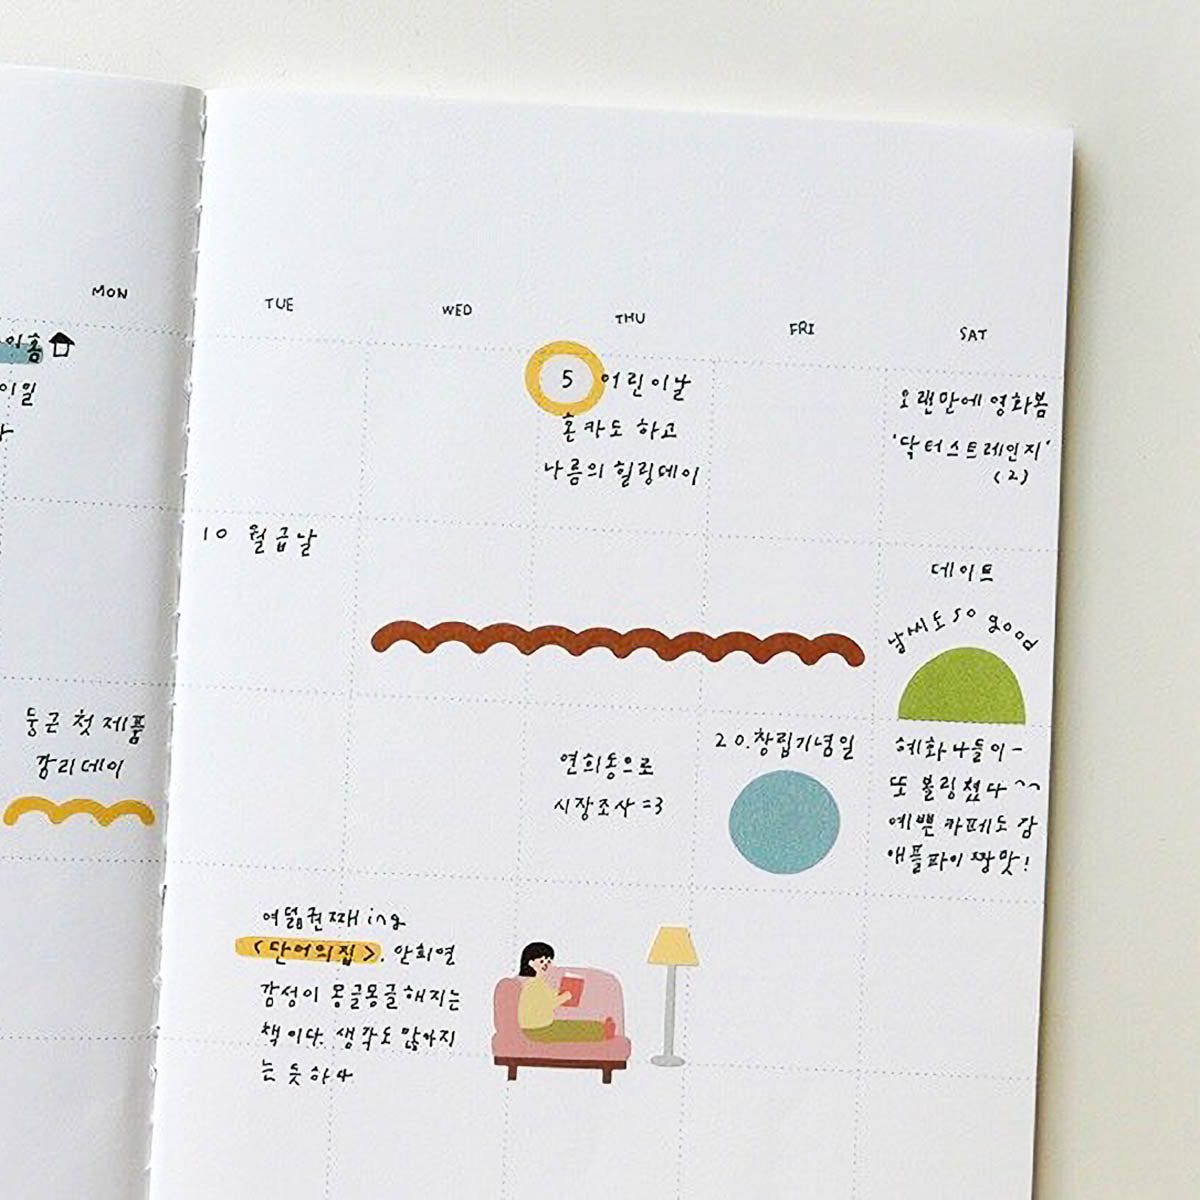 MON
TUE
WED
THU
FRI
SAT
이홈
이일
5 어린이날
혼카도 하고
나름의 힐링데이
오랜만에 영화봄
'닥터스트레인지'
(2)
10 월급날
데이트
날씨도 so good
둥근 첫 제품
감리데이
연희동으로
시장조사 =3
20. 창립기념일
혜화나들이-
또 볼링쳤다 ^^
예쁜 카페도 감
애플파이 짱맛!
여덟권째 ing
<단어의집>. 안희연
감성이 몽글몽글해지는
책이다. 생각도 많아지
는 듯하다